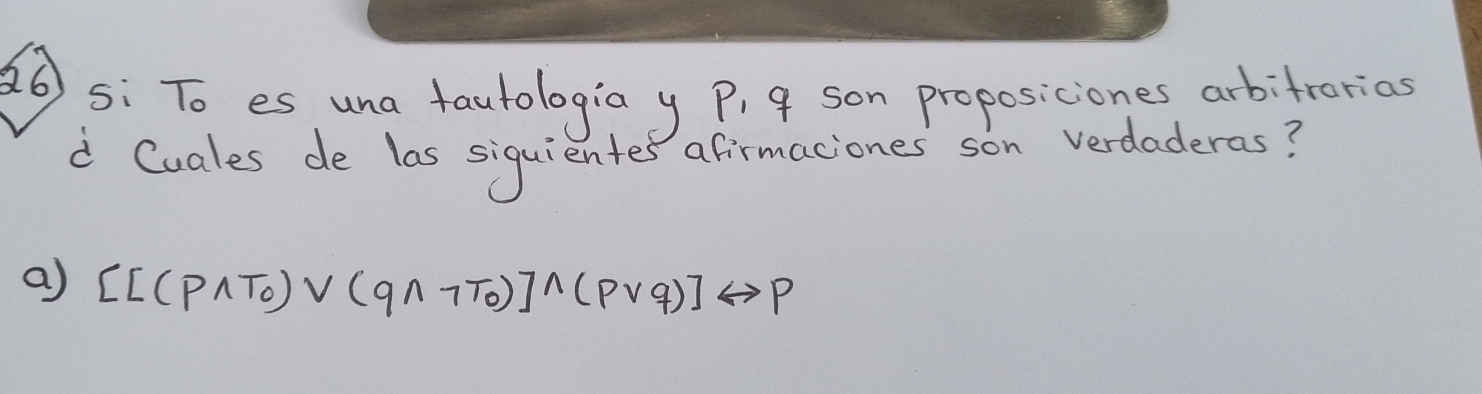 26) Si To es una tautología y P, q son proposiciones arbitrarias
¿ Cuales de las siguientes afirmaciones son verdaderas?
a) [[(P∧To) ∨ (q∧ ¬To)]∧(P∨q)] ↔ P